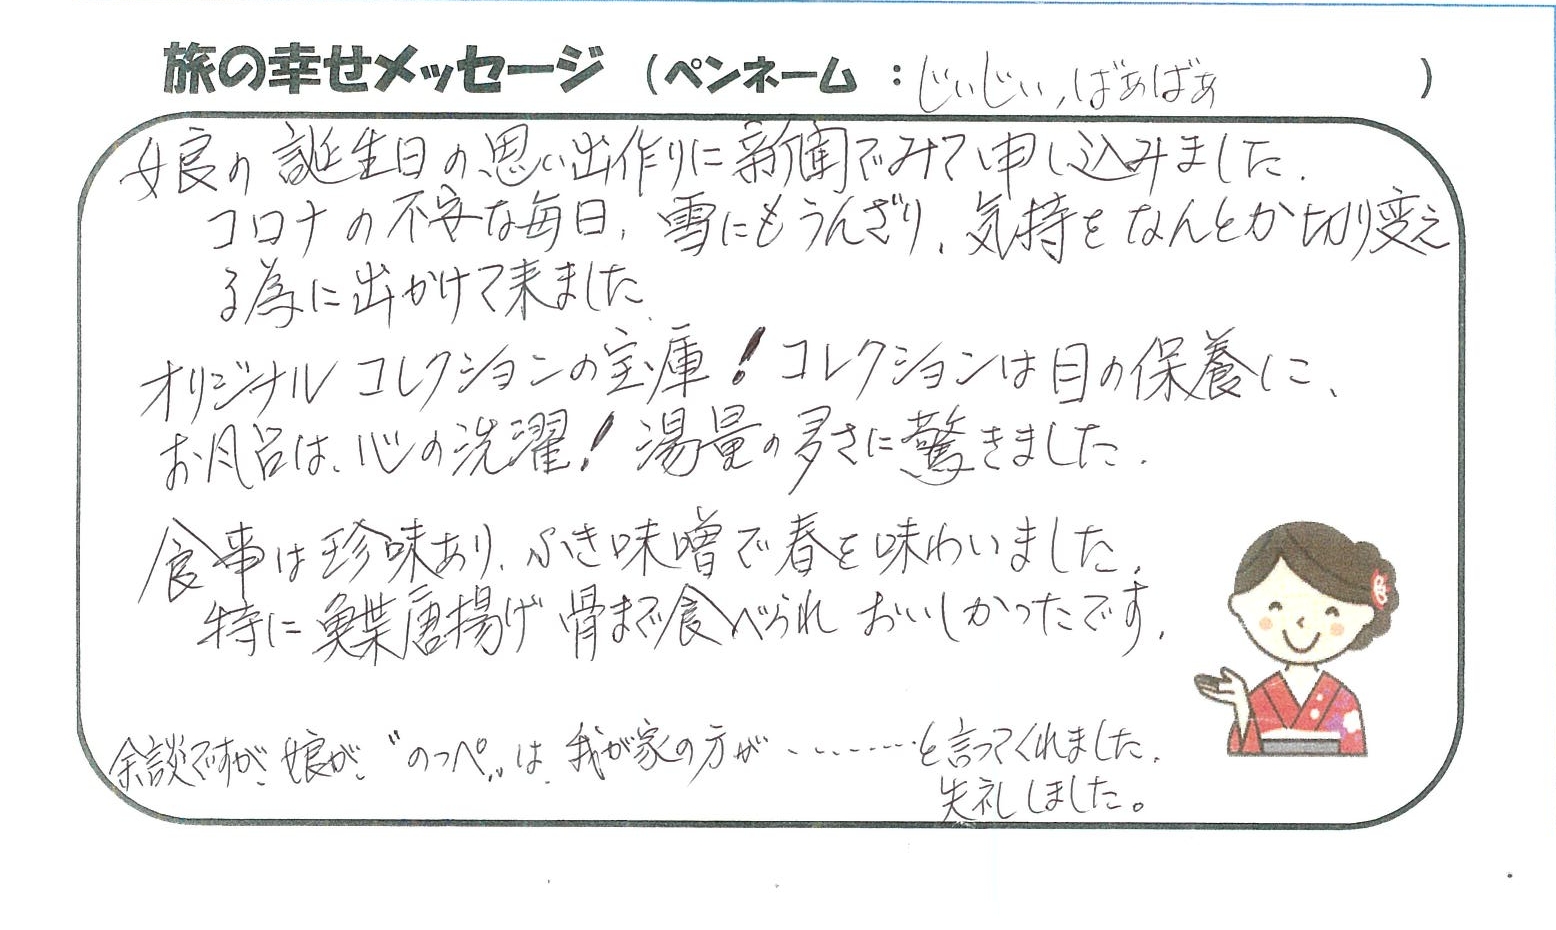 旅の幸せメッセージ (ペンネーム : じいじい,ばぁばぁ )
娘の誕生日の思い出作りに新聞でみて申し込みました.
コロナの不安な毎日, 雪にもうんざり、気持をなんとか切り変え
る為に出かけて来ました.
オリジナルコレクションの宝庫!コレクションは目の保養に、
お風呂は、心の洗濯!湯量の多さに驚きました.
食事は珍味あり、ふき味噌で春を味わいました.
特に鰈唐揚げ 骨まで食べられ おいしかったです.
余談ですが、娘が、〝のっぺ〟は 我が家の方が ‥‥‥‥と言ってくれました.
失礼しました。